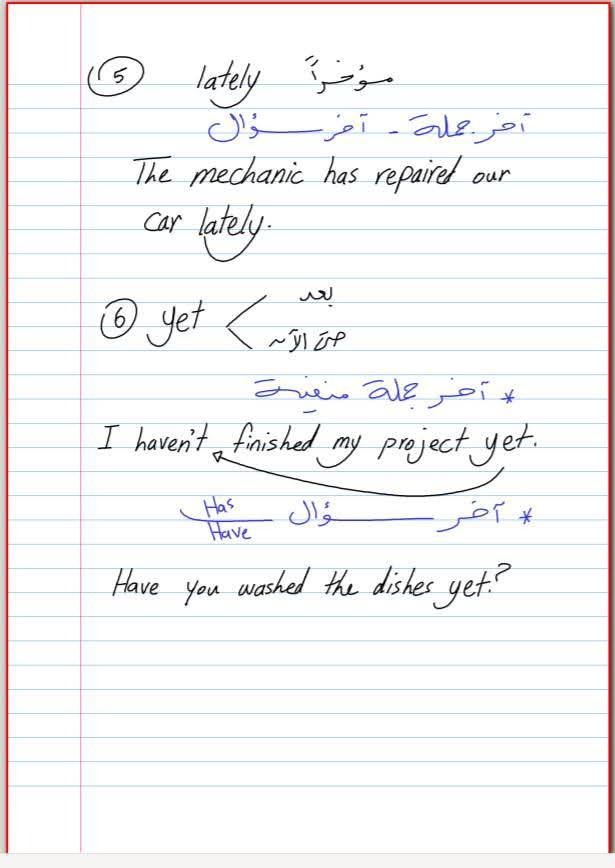 5 lately مؤخراً
آخر جملة - آخر سؤال
The mechanic has repaired our
car lately.
6 yet < بعد
حتى الآن
* آخر جملة منفية
I haven't finished my project yet.
* آخر سؤال Has
Have
Have you washed the dishes yet?